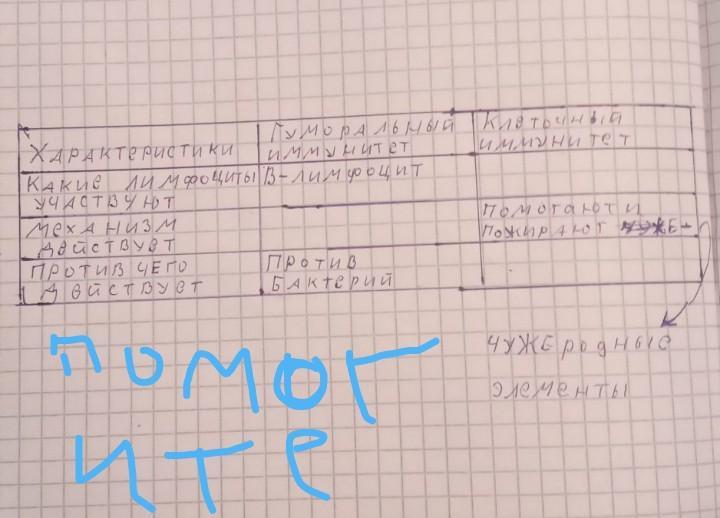 Характеристики
Гуморальный
иммунитет
Клеточный
иммунитет
Какие лимфоциты
участвуют
В-лимфоцит
механизм
действует
помогают и
пожирают
Против чего
действует
Против
бактерий
чужеродные
элементы
ПОМОГ
ИТЕ